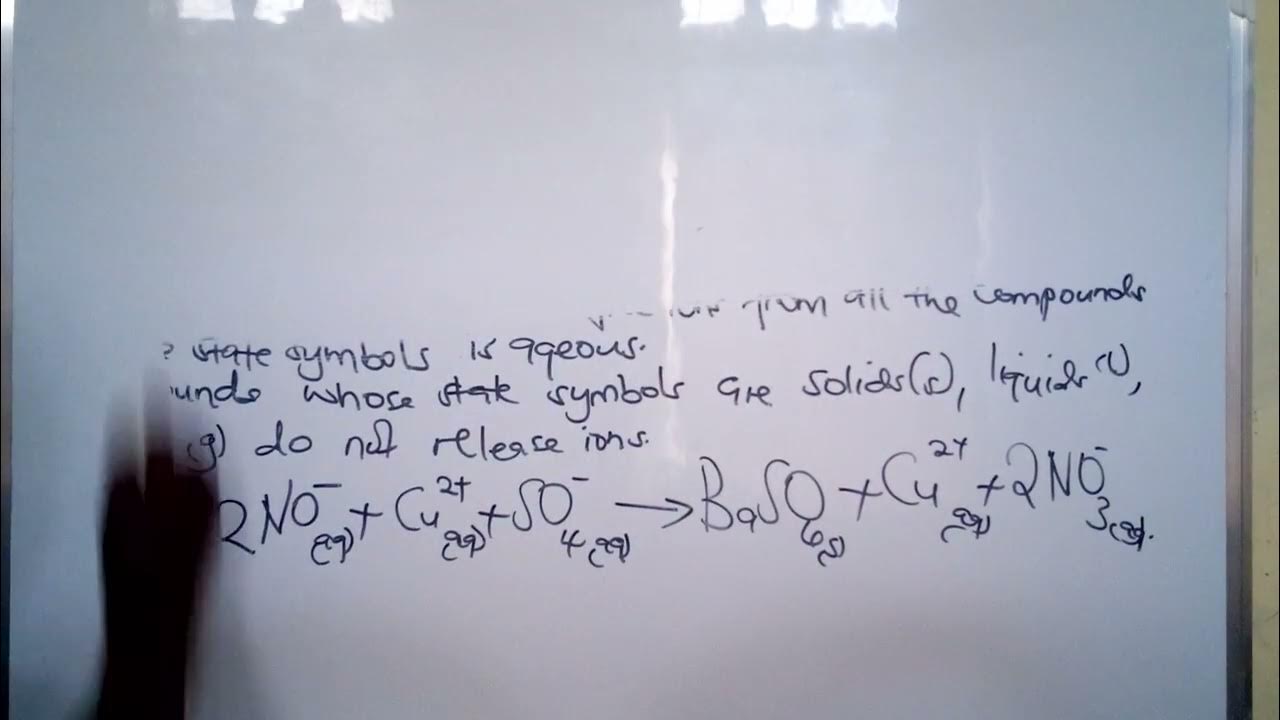 all the compounds
state symbols is aqeous.
whose state symbols are solids(s), liquids(l),
(g) do not release ions.
2NO⁻(aq) + Cu²⁺(aq) + SO₄⁻(aq) → BaSO₄(s) + Cu²⁺(aq) + 2NO₃⁻(aq).